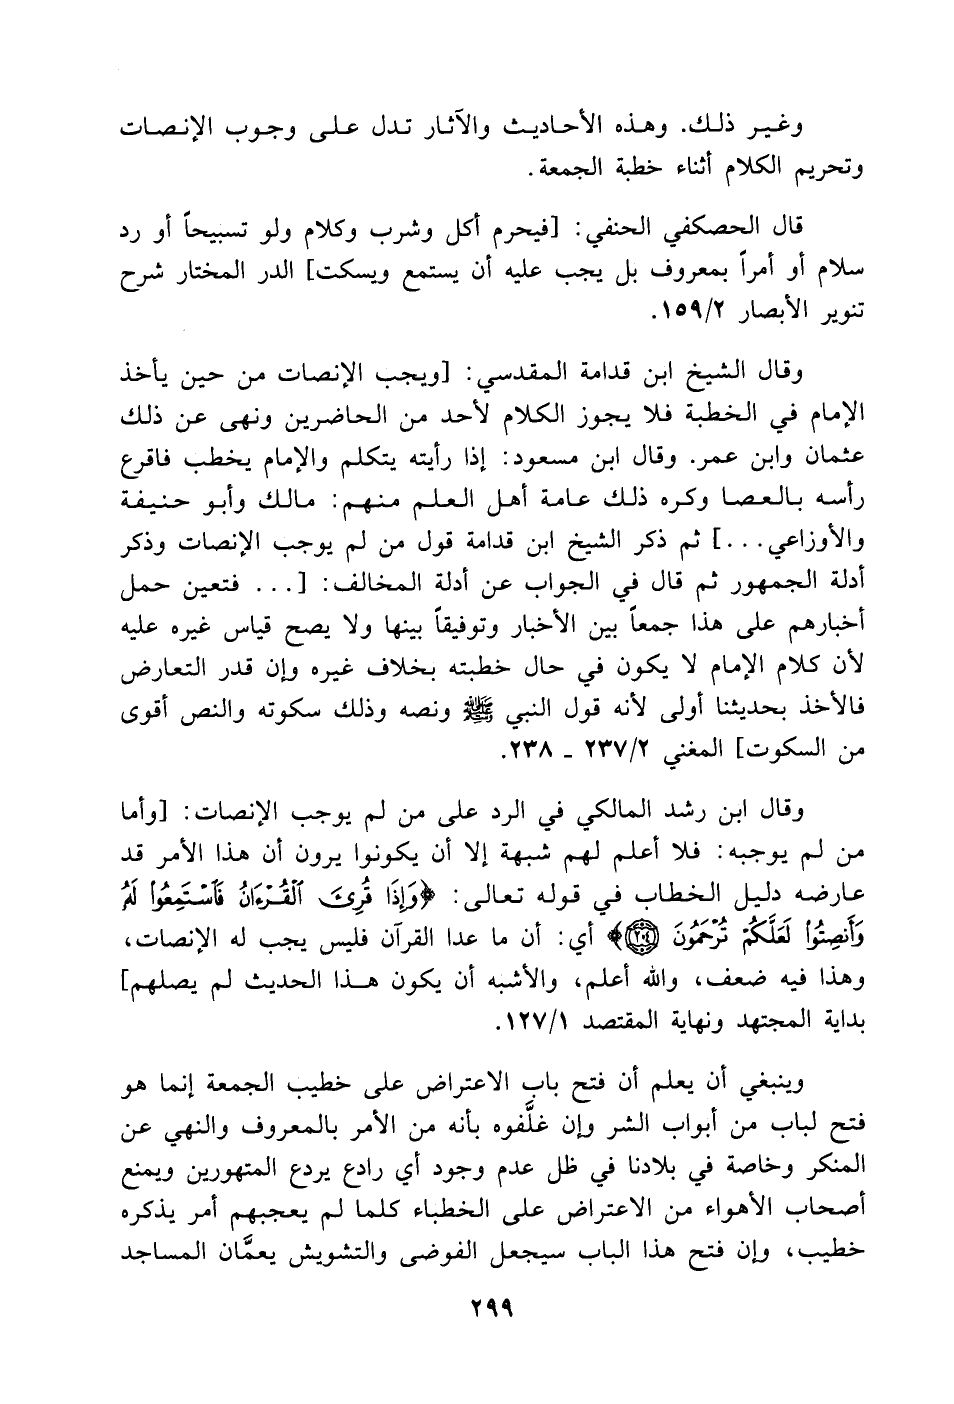 وغير ذلك. وهذه الأحاديث والآثار تدل على وجوب الإنصات
وتحريم الكلام أثناء خطبة الجمعة.
قال الحصكفي الحنفي: [فيحرم أكل وشرب وكلام ولو تسبيحاً أو رد
سلام أو أمراً بمعروف بل يجب عليه أن يستمع ويسكت] الدر المختار شرح
تنوير الأبصار ١٥٩/٢.
وقال الشيخ ابن قدامة المقدسي: [ويجب الإنصات من حين يأخذ
الإمام في الخطبة فلا يجوز الكلام لأحد من الحاضرين ونهى عن ذلك
عثمان وابن عمر. وقال ابن مسعود: إذا رأيته يتكلم والإمام يخطب فاقرع
رأسه بالعصا وكره ذلك عامة أهل العلم منهم: مالك وأبو حنيفة
والأوزاعي...] ثم ذكر الشيخ ابن قدامة قول من لم يوجب الإنصات وذكر
أدلة الجمهور ثم قال في الجواب عن أدلة المخالف: [... فتعين حمل
أخبارهم على هذا جمعاً بين الأخبار وتوفيقاً بينها ولا يصح قياس غيره عليه
لأن كلام الإمام لا يكون في حال خطبته بخلاف غيره وإن قدر التعارض
فالأخذ بحديثنا أولى لأنه قول النبي ﷺ ونصه وذلك سكوته والنص أقوى
من السكوت] المغني ٢٣٧/٢ ـ ٢٣٨.
وقال ابن رشد المالكي في الرد على من لم يوجب الإنصات: [وأما
من لم يوجبه: فلا أعلم لهم شبهة إلا أن يكونوا يرون أن هذا الأمر قد
عارضه دليل الخطاب في قوله تعالى: ﴿وَإِذَا قُرِئَ ٱلْقُرْءَانُ فَٱسْتَمِعُوا۟ لَهُ
وَأَنصِتُوا۟ لَعَلَّكُمْ تُرْحَمُونَ ٢٠٤﴾ أي: أن ما عدا القرآن فليس يجب له الإنصات،
وهذا فيه ضعف، والله أعلم، والأشبه أن يكون هذا الحديث لم يصلهم]
بداية المجتهد ونهاية المقتصد ١٢٧/١.
وينبغي أن يعلم أن فتح باب الاعتراض على خطيب الجمعة إنما هو
فتح لباب من أبواب الشر وإن غلَّفوه بأنه من الأمر بالمعروف والنهي عن
المنكر وخاصة في بلادنا في ظل عدم وجود أي رادع يردع المتهورين ويمنع
أصحاب الأهواء من الاعتراض على الخطباء كلما لم يعجبهم أمر يذكره
خطيب، وإن فتح هذا الباب سيجعل الفوضى والتشويش يعمَّان المساجد
٢٩٩